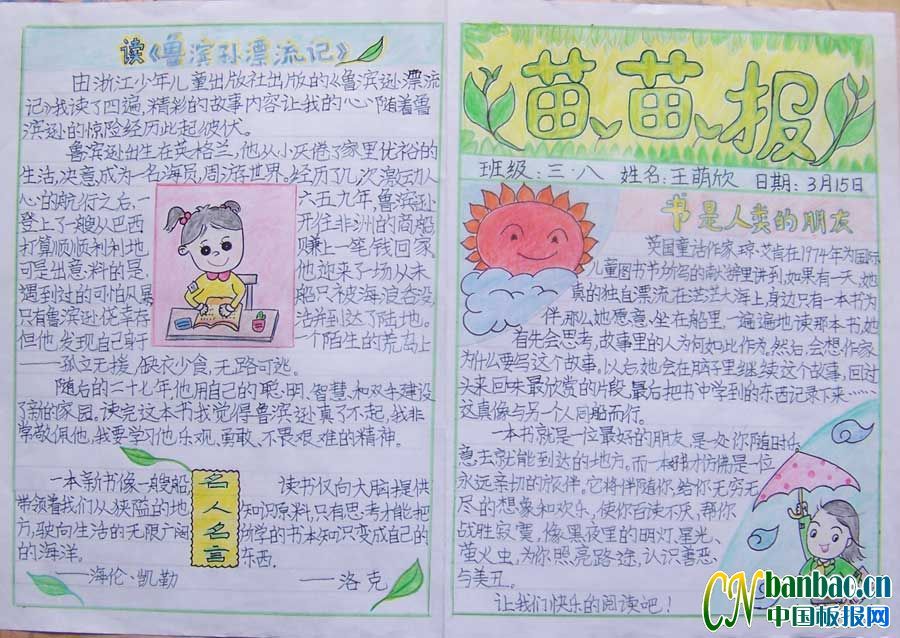 读《鲁滨孙漂流记》
由浙江少年儿童出版社出版的《鲁滨逊漂流
记》我读了四遍,精彩的故事内容让我的心随着鲁
滨逊的惊险经历此起彼伏。
鲁滨逊出生在英格兰,他从小厌倦了家里优裕的
生活,决意成为一名海员,周游世界。经历了几次激动人
心的航行之后,一六五九年,鲁滨逊
登上了一艘从巴西开往非洲的商船
打算顺顺利利地赚上一笔钱回家
可是出意料的是,他迎来了一场从未
遇到过的可怕风暴船只被海浪吞没,
只有鲁滨逊侥幸存活并到达了陆地。
但他发现自己身于一个陌生的荒岛上
——孤立无援,缺衣少食,无路可逃。
随后的二十七年他用自己的聪明、智慧和双手建设
了新的家园。读完这本书我觉得鲁滨逊真了不起,我非
常敬佩他,我要学习他乐观、勇敢、不畏艰难的精神。
一本新书像一艘船
带领着我们从狭隘的地
方,驶向生活的无限广阔
的海洋。
——海伦·凯勒
名人名言
读书仅向大脑提供
知识原料,只有思考才能把
所学的书本知识变成自己的
东西。
——洛克
苗苗报
班级:三·八 姓名:王萌欣 日期:3月15日
书是人类的朋友
英国童话作家琼·艾肯在1974年为国际
儿童图书节所写的献辞里讲到,如果有一天,她
真的独自漂流在茫茫大海上,身边只有一本书为
伴,那么她愿意坐在船里,一遍遍地读那本书,她
首先会思考,故事里的人为何如此作为。然后,会想作家
为什么要写这个故事,以后她会在脑子里继续这个故事,回过
头来回味最欣赏的片段,最后把书中学到的东西记录下来……
这真像与另一个人同船而行。
一本书就是一位最好的朋友,是一处你随时乐
意去就能到达的地方。而一本好书仿佛是一位
永远亲切的旅伴。它将伴随你,给你无穷无
尽的想象和欢乐,使你百读不厌,帮你
战胜寂寞,像黑夜里的明灯、星光、
萤火虫,为你照亮路途,认识善恶
与美丑。
让我们快乐的阅读吧!
CN banbao.cn
中国板报网